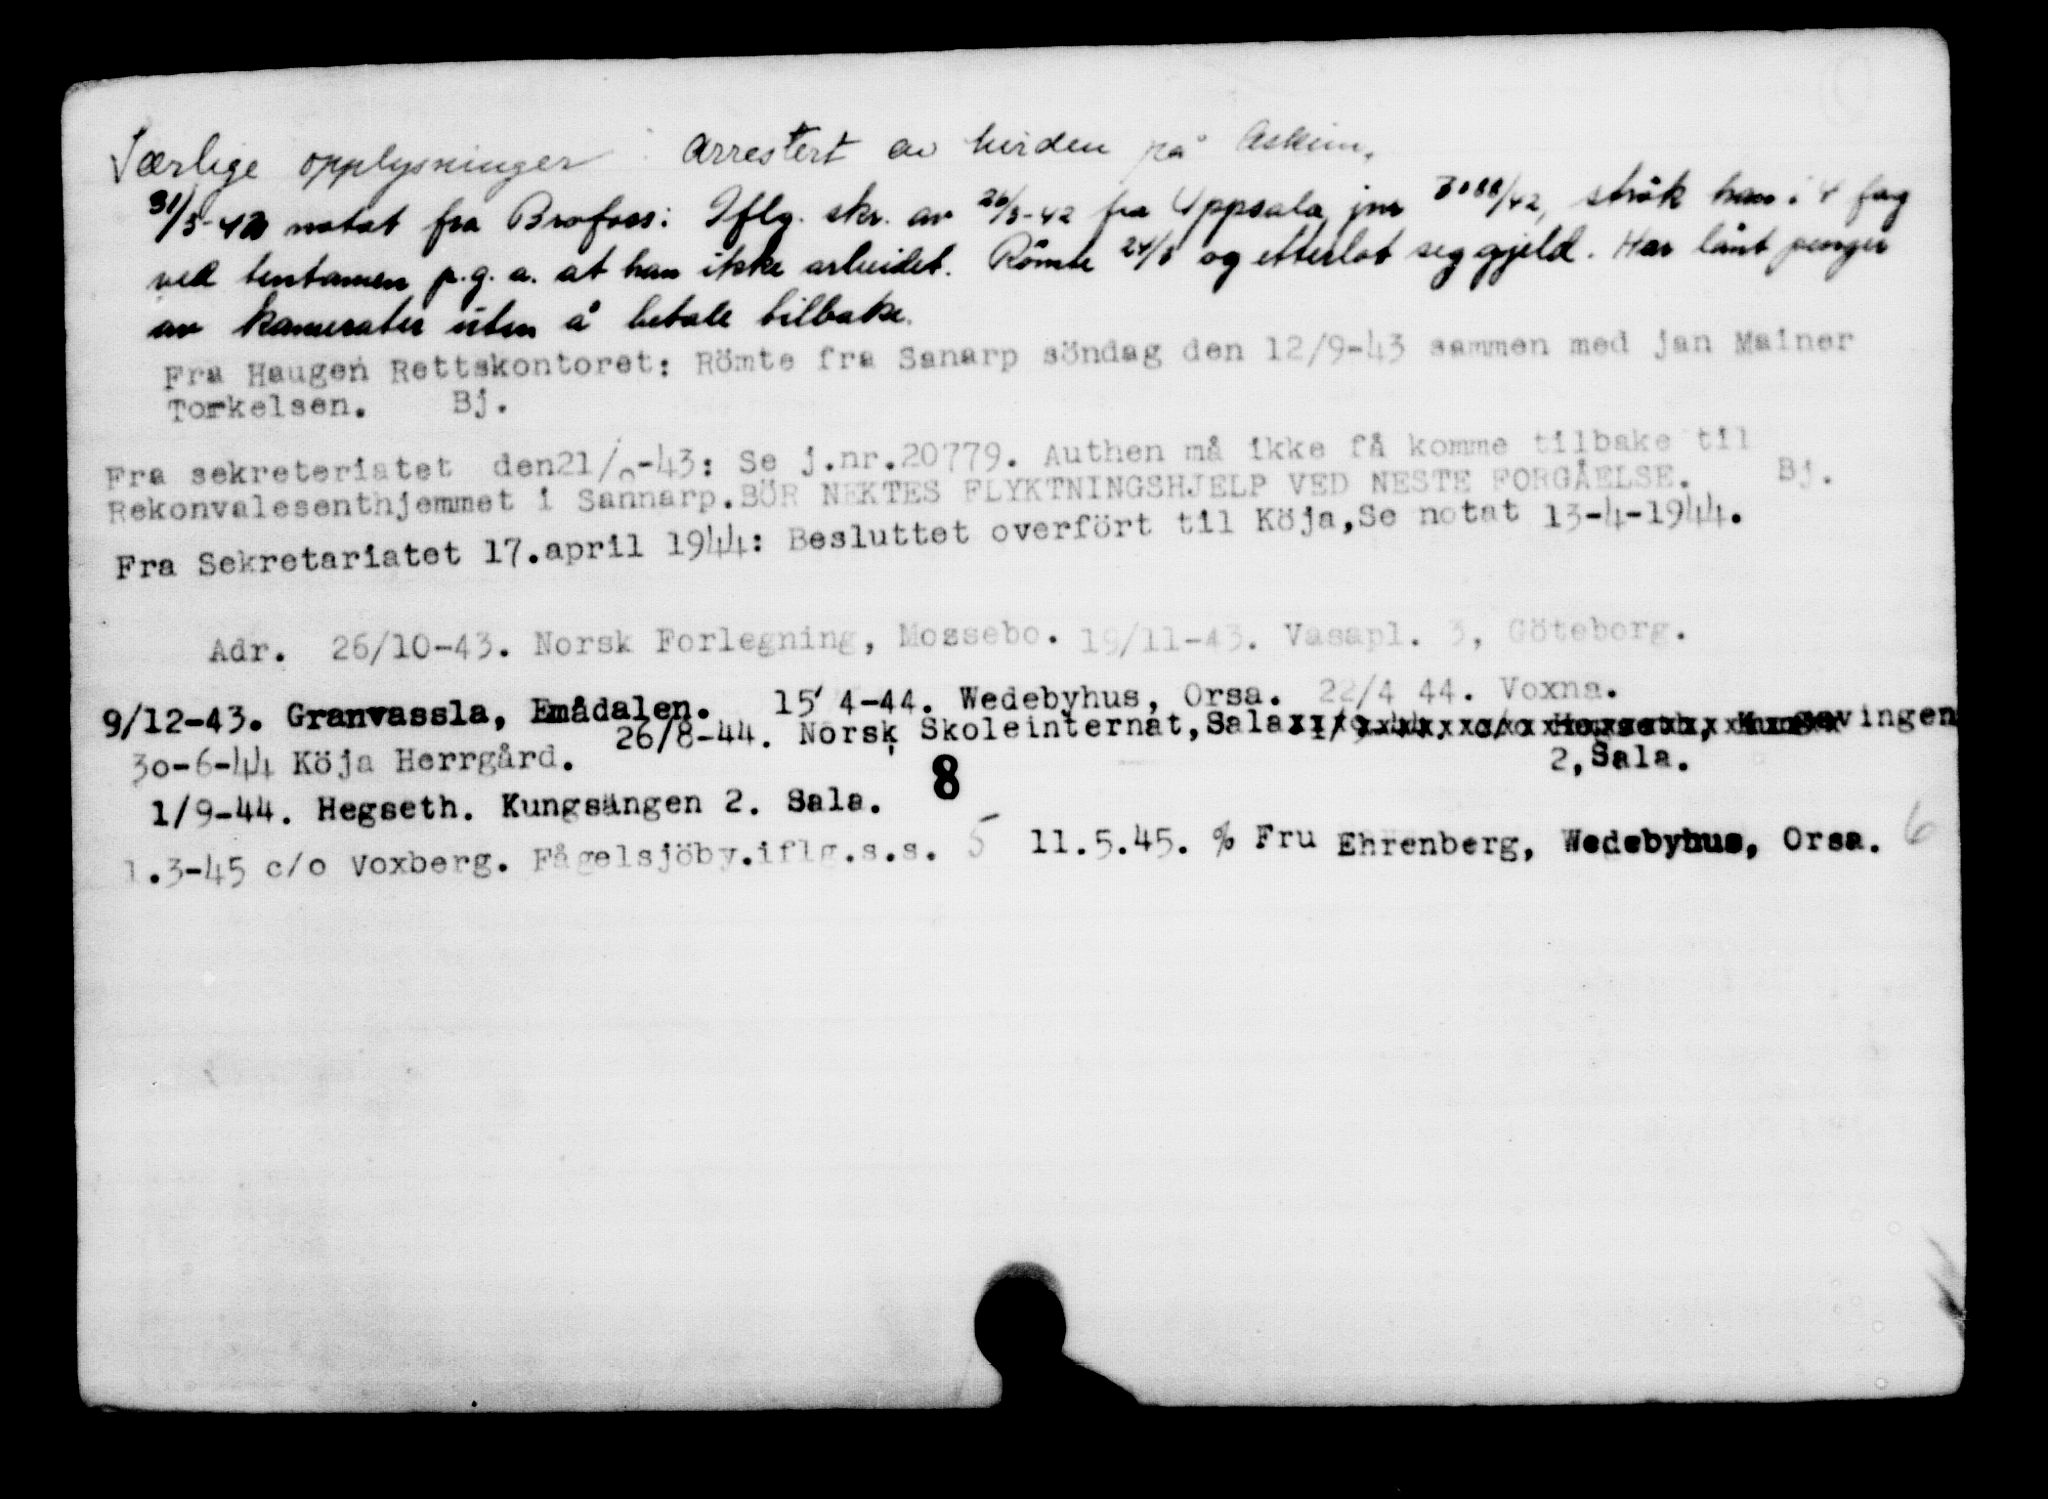 Særlige opplysninger : Arrestert av hirden på Askim.
31/5-42 notat fra Brofoss: Iflg. skr. av 26/5-42 fra Uppsala, jnr 3088/42, strök han i 4 fag
ved tentamen p.g.a. at han ikke arbeidet. Römte 24/5 og etterlot seg gjeld. Har lånt penger
av kamerater uten å betale tilbake.
Fra Haugen Rettskontoret: Römte fra Sanarp söndag den 12/9-43 sammen med jan Mainer
Torkelsen. Bj.
Fra sekreteriatet den21/ -43: Se j.nr.20779. Authen må ikke få komme tilbake til
Rekonvalesenthjemmet i Sannarp.BÖR NEKTES FLYKTNINGSHJELP VED NESTE FORGÅELSE. Bj.
Fra Sekretariatet 17.april 1944: Besluttet overfört til Köja,Se notat 13-4-1944.
Adr. 26/10-43. Norsk Forlegning, Mossebo. 19/11-43. Vasapl. 3, Göteborg.
9/12-43. Granvassla, Emådalen. 15 4-44. Wedebyhus, Orsa. 22/4 44. Voxna.
26/8-44. Norsk Skoleinternat,Sala 1/9-44. c/o Hegseth, Kungsvingen
30-6-44 Köja Herrgård. 2,Sala.
8
1/9-44. Hegseth. Kungsängen 2. Sala.
1.3-45 c/o Voxberg. Fågelsjöby.iflg.s.s. 5 11.5.45. % Fru Ehrenberg, Wedebyhus, Orsa. 6